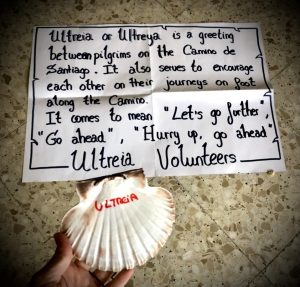 Ultreia or Ultreya is a greeting
between pilgrims on the Camino de
Santiago. It also serves to encourage
each other on their journeys on foot
along the Camino.
It comes to mean "Let's go further",
"Go ahead", "Hurry up, go ahead"
Ultreia Volunteers
ULTREIA